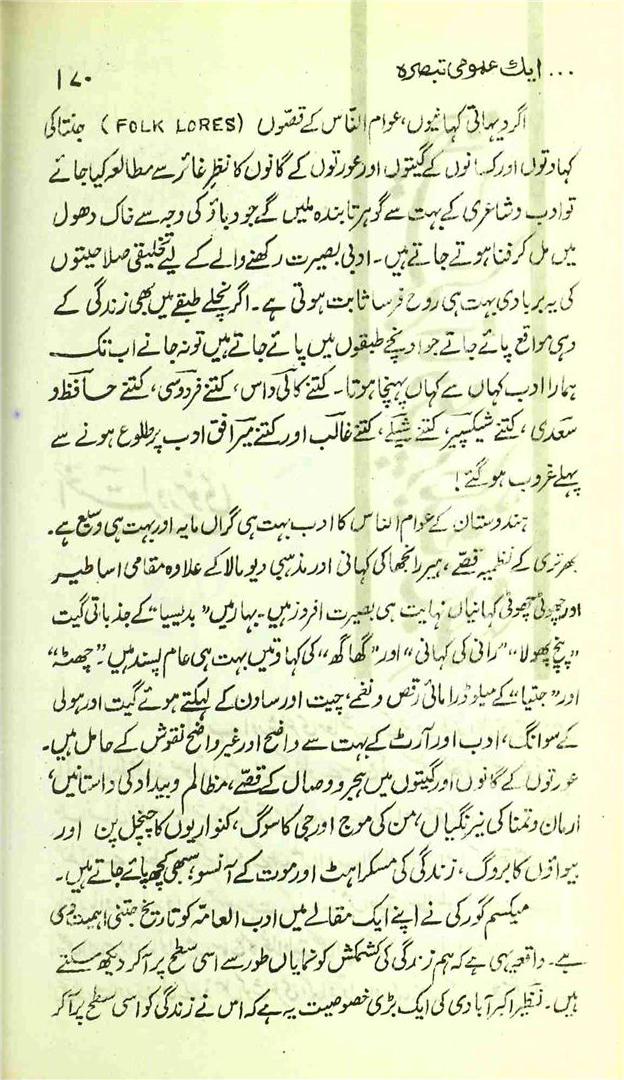 ... ایک عمومی تبصرہ
۱۷۰
اگر دیہاتی کہانیوں، عوام النّاس کے قصّوں (FOLK LORES) جنتا کی
کہاوتوں اور کسانوں کے گیتوں اور عورتوں کے گانوں کا نظرِ غائر سے مطالعہ کیا جائے
تو ادب و شاعری کے بہت سے گوہر تابندہ ملیں گے جو دباؤ کی وجہ سے خاک دھول
میں مل کر فنا ہوتے جاتے ہیں۔ ادبی بصیرت رکھنے والے کے لیے تخلیقی صلاحیتوں
کی یہ بربادی بہت ہی روح فرسا ثابت ہوتی ہے۔ اگر نچلے طبقے میں بھی زندگی کے
وہی مواقع پائے جاتے جو اونچے طبقوں میں پائے جاتے ہیں تو نہ جانے اب تک
ہمارا ادب کہاں سے کہاں پہنچا ہوتا۔ کتنے کالی داس، کتنے فردوسی، کتنے حافظ و
سعدی، کتنے شیکسپیر، کتنے شیلے، کتنے غالب اور کتنے میر افق ادب پر طلوع ہونے سے
پہلے غروب ہو گئے!
ہندوستان کے عوام الناس کا ادب بہت ہی گراں مایہ اور بہت ہی وسیع ہے۔
بھرتری کے نظمیہ قصّے، ہیر رانجھا کی کہانی اور مذہبی دیو مالا کے علاوہ مقامی اساطیر
اور چھوٹی چھوٹی کہانیاں نہایت ہی بصیرت افروز ہیں۔ بہار میں ”بدیسیا“ کے جذباتی گیت
”پنچ پھولا“ ”رانی کی کہانی“ اور ”گھاگھ“ کی کہاوتیں بہت ہی عام پسند ہیں۔ ”چھٹہ“
اور ”جتیا“ کے میلوڈرامائی رقص و نغمے، چیت اور ساون کے لہکتے ہوئے گیت اور ہولی
کے سوانگ، ادب اور آرٹ کے بہت سے واضح اور غیر واضح نقوش کے حامل ہیں۔
عورتوں کے گانوں اور گیتوں میں ہجر و وصال کے قصّے، مظالم و بیداد کی داستانیں،
ارمان و تمنا کی نیرنگیاں، من کی موج اور جی کا سوگ، کنواریوں کا چنچل پن اور
بیواؤں کا بروگ، زندگی کی مسکراہٹ اور موت کے آنسو؛ سبھی کچھ پائے جاتے ہیں۔
میکسم گورکی نے اپنے ایک مقالے میں ادب العامّہ کو تاریخ جتنی اہمیت دی
ہے۔ واقعہ یہی ہے کہ ہم زندگی کی کشمکش کو نمایاں طور سے اسی سطح پر آ کر دیکھ سکتے
ہیں۔ نظیر اکبر آبادی کی ایک بڑی خصوصیت یہ ہے کہ اس نے زندگی کو اسی سطح پر آ کر